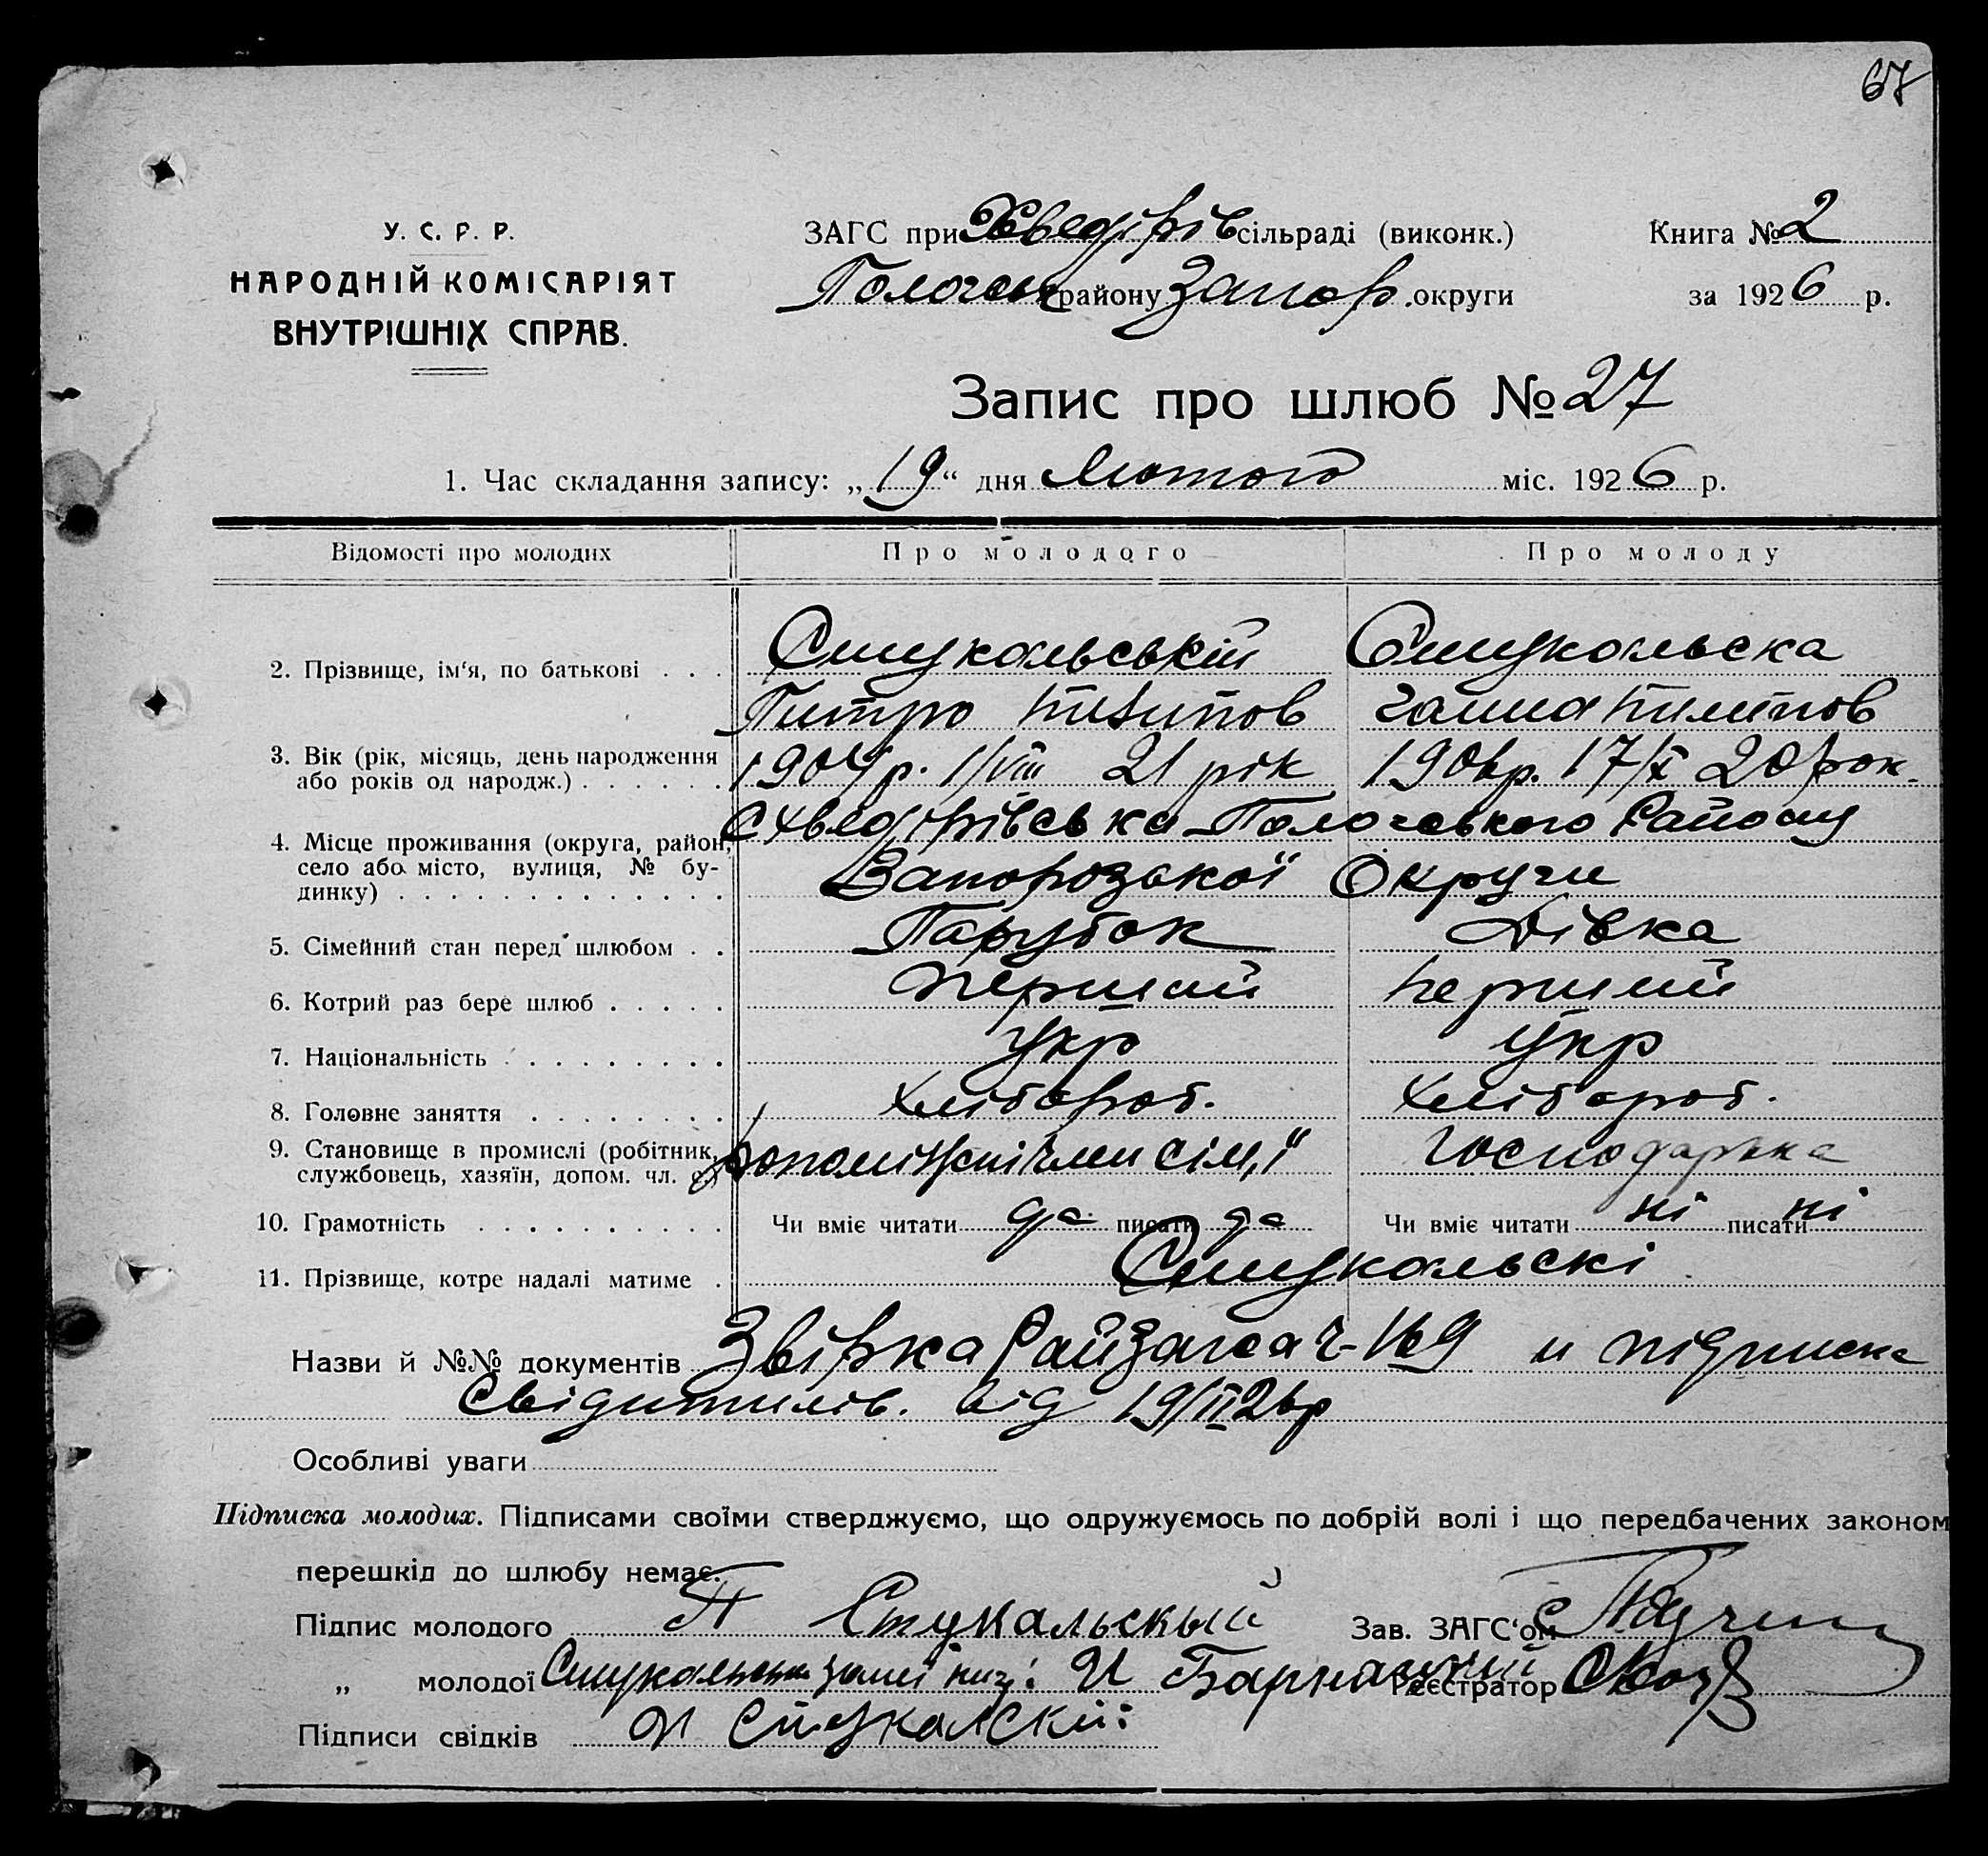 67
У. С. Р. Р.
НАРОДНІЙ КОМІСАРІЯТ
ВНУТРІШНІХ СПРАВ.
ЗАГС при Хведірів сільраді (виконк.) Книга № 2
району Запор. округи за 1926 р.
Запис про шлюб № 27
1. Час складання запису: „19“ дня Лютого міс. 1926 р.
Відомості про молодих Про молодого Про молоду
2. Прізвище, ім'я, по батькові . . . Стукальський Стукальска
Питро Пилипов Ганна Пилипов
3. Вік (рік, місяць, день народження
або років од народж.) . . . . . . 1904р. 1/VIII 21 рік 1906р. 17/X 20 рок.
4. Місце проживання (округа, район, с Хведірівська Пологського Району
село або місто, вулиця, № бу-
динку) . . . . . . . . . . . . . Запорозької Округи
5. Сімейний стан перед шлюбом . . Парубок Дівка
6. Котрий раз бере шлюб . . . . . Перший Перший
7. Національність . . . . . . . . . Укр Укр
8. Головне заняття . . . . . . . . Хлібороб. Хлібороб.
9. Становище в промислі (робітник, член сім,ї Господарька
службовець, хазяїн, допом. чл. с.)
10. Грамотність . . . . . . . . . . Чи вміє читати да писати да Чи вміє читати ні писати ні
11. Прізвище, котре надалі матиме . Стукальскі
Назви й №№ документів Звірка и підписка
від 19/II 26р
Особливі уваги
Підписка молодих. Підписами своїми стверджуємо, що одружуємось по добрій волі і що передбачених законом
перешкід до шлюбу немає.
Підпис молодого П Стукальскый Зав. ЗАГС'ом
„ молодої И Реєстратор
Підписи свідків